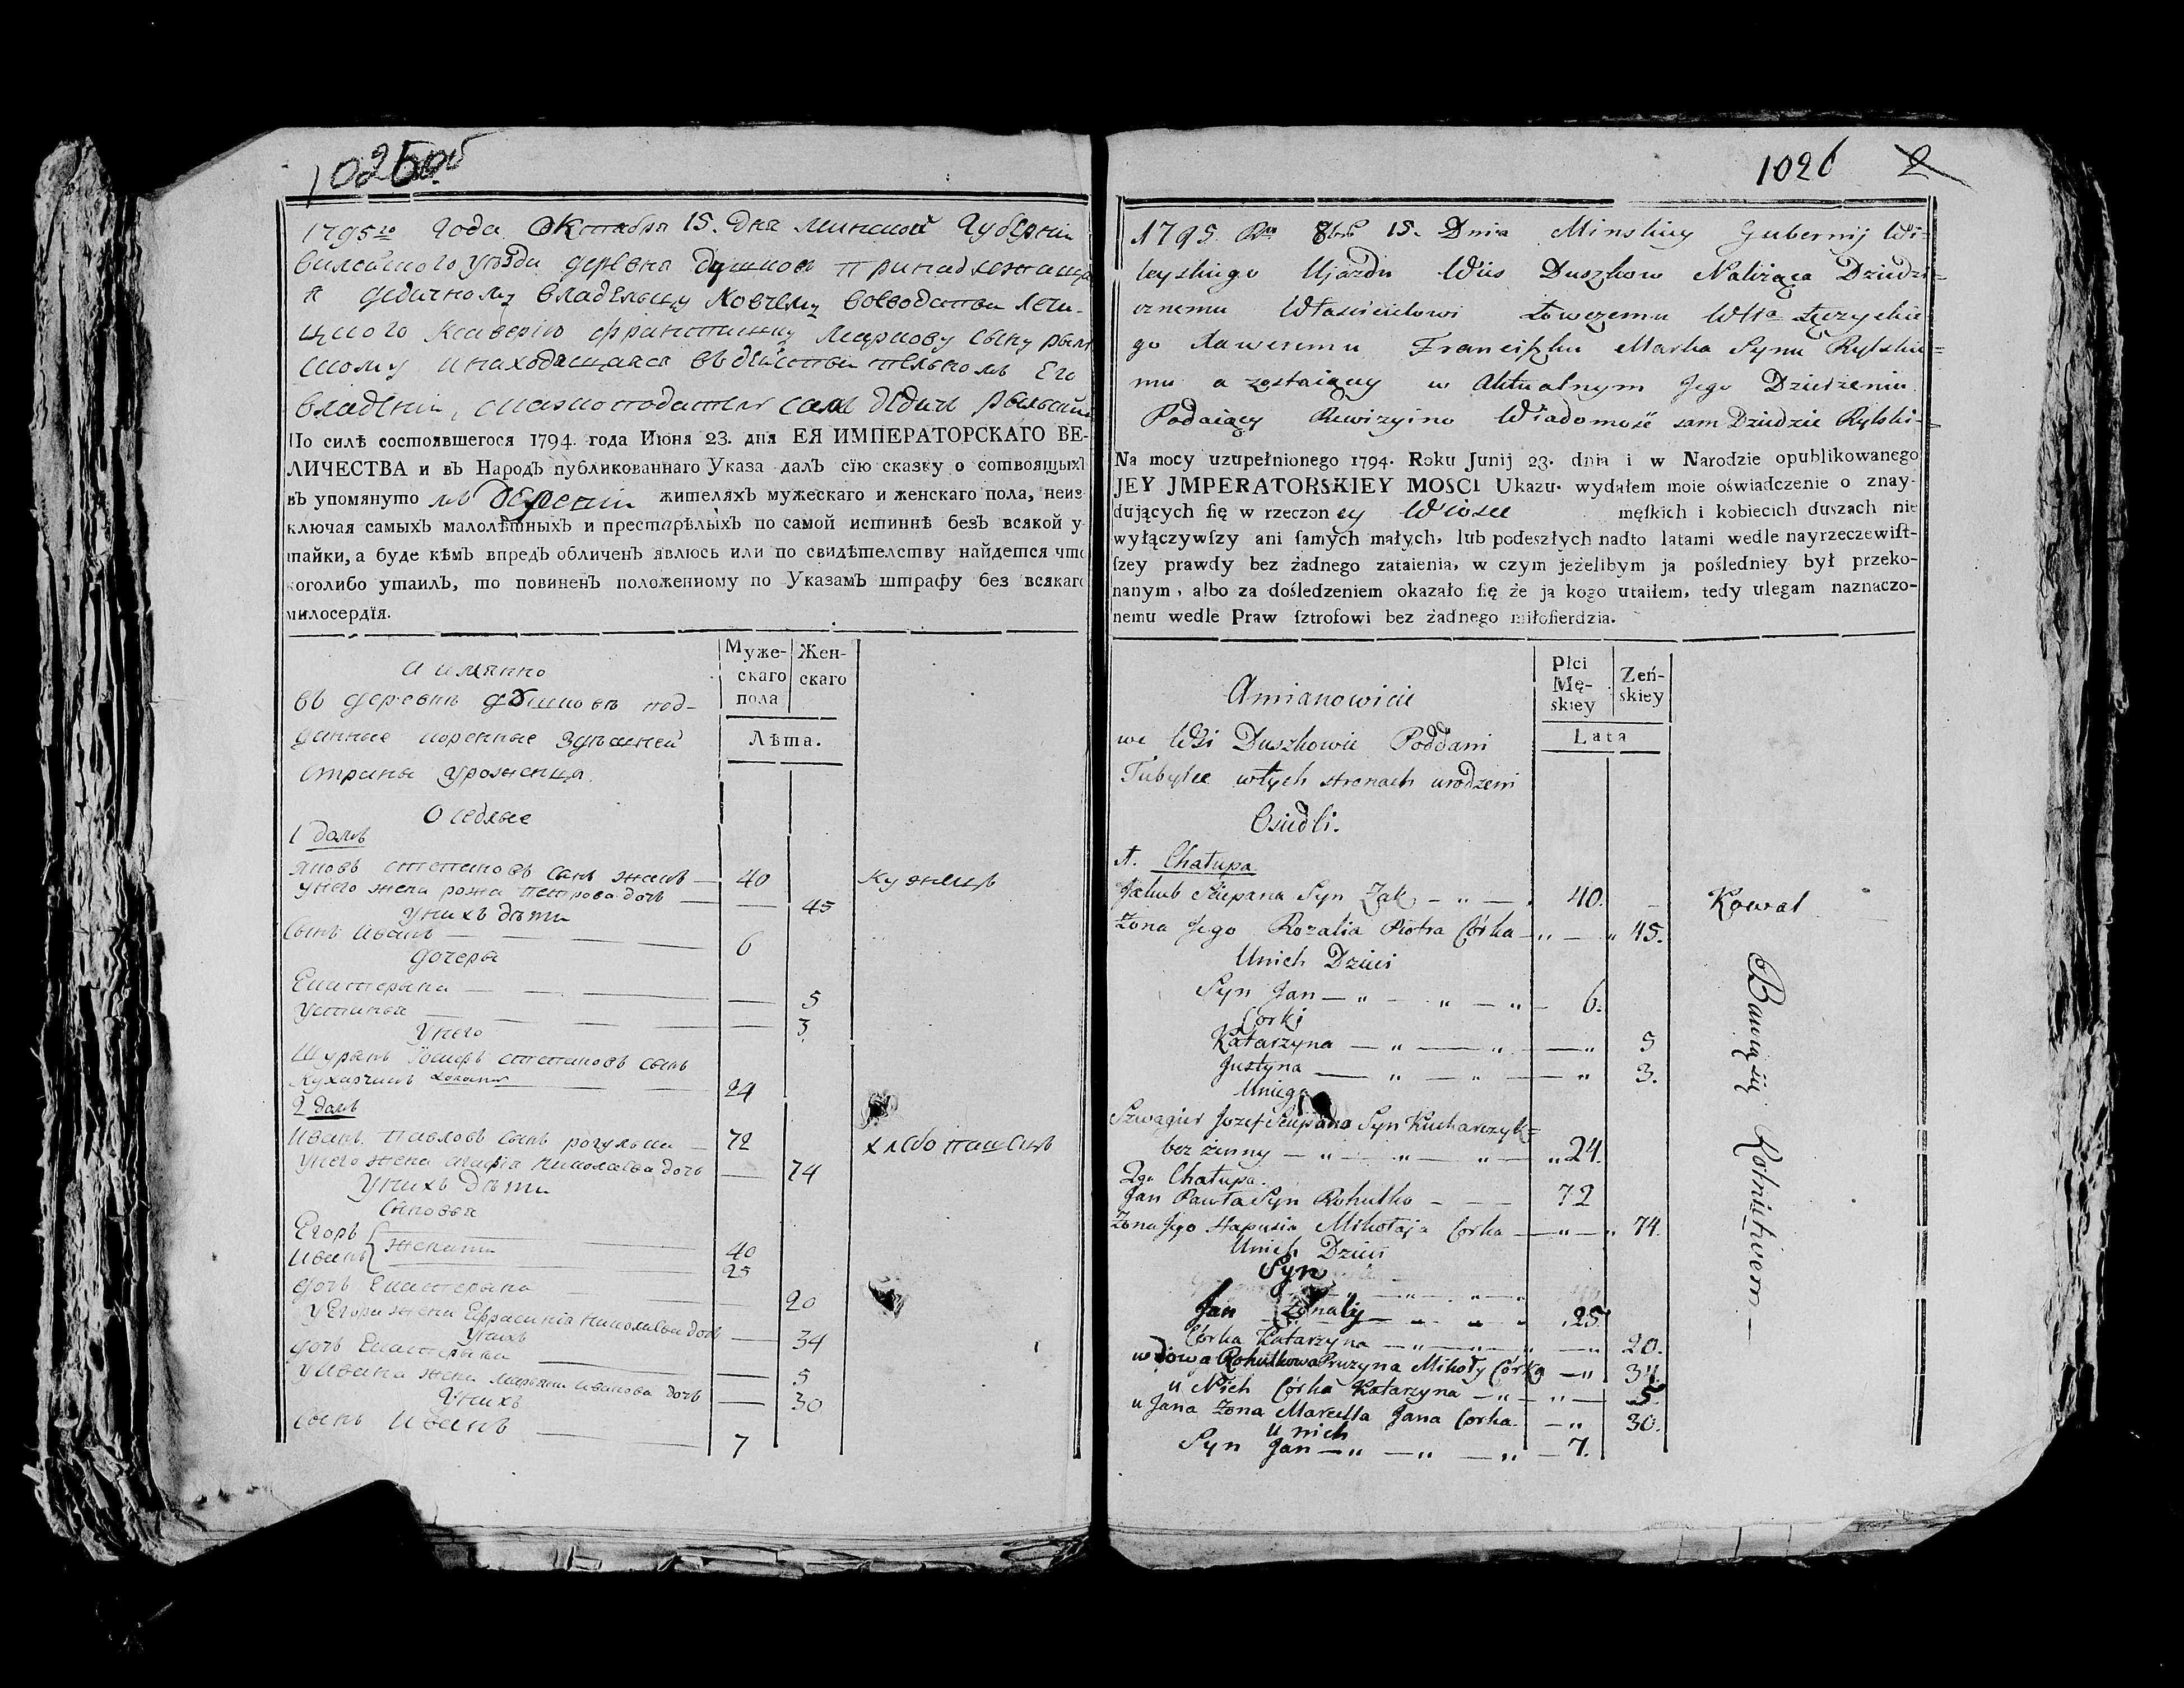 1025об
1795го Года Октября 15. дня минской Губернии
вилейского уезда деревня душковъ принадлежаща
я дедичному владельцу ловчему воеводства лен-
чицкого ксаверию францишку маркову сыну рыл
скому и находящаяся въ действительномъ Его
владении, сказкоподатель самъ дедичъ рыльский
По силѣ состоявшегося 1794. года Июня 23. дня ЕЯ ИМПЕРАТОРСКАГО ВЕ-
ЛИЧЕСТВА и въ Народъ публикованнаго Указа далъ сїю сказку о сотвоящыхъ
въ упомянуто мъ деревни жителяхъ мужескаго и женскаго пола, неиз-
ключая самыхъ малолѣтныхъ и престарѣлыхъ по самой истиннѣ безъ всякой у
тайки, а буде кѣмъ впредъ обличенъ явлюсь или по свидѣтелству найдется что
коголибо утаилъ, то повиненъ положенному по Указамъ штрафу без всякаго
милосердїя.
Муже-
скаго
пола
Жен-
скаго
Лѣта.
а имянно
въ деревнѣ душковѣ под-
данные коренные здѣшней
страны уроженца.
Оседлые
1 домъ
яковъ степановъ сынъ жакъ — 40 кузнецъ
у него жена рожа петрова дочъ — 45
у нихъ дѣти
сынъ иванъ — 6
дочеры
Екатерына — 5
устинья — 3
у него
Шурынъ Иосифъ степановъ сынъ
кухарчикъ холостъ — 24
2 домъ
иванъ павловъ сынъ рогулька — 72 хлебопашецъ
у него жена агафia николаева дочъ — 74
у нихъ дѣти
сыновья
Егоръ
иванъ } женати 40
25
дочъ Екатерына — 20
у Егора жена Ефрасиния николаева дочъ — 34
у нихъ
дочъ Екатерына — 5
у ивана жена марьяна иванова дочъ — 30
у нихъ
сынъ иванъ — 7
1026 2
1795 Rku 8bra 15. Dnia Minskiey Gubernij Wi=
leyskiego Ujazdu Wieś Duszkow Należąca Dziedzi=
cznemu Właścicielowi Łowczemu Wttа Łęczyckie
go Xaweremu Franciszku Marka Synu Rylskie=
mu a zostaiący w Aktualnym Jego Dziedzeniu
Podaiący Rewizyino Wiadomość sam Dziedzic Rylski=
Na mocy uzupełnionego 1794. Roku Junij 23. dnia i w Narodzie opublikowanego
JEY JMPERATORSKIEY MOSCI Ukazu. wydałem moie oświadczenie o znay-
dujących ſię w rzeczon ey Wiosce męſkich i kobiecich duszach nie
wyłączywſzy ani ſamych małych, lub podeszłych nadto latami wedle nayrzeczewiſt-
ſzey prawdy bez żadnego zataienia, w czym jeżelibym ja pośledniey był przeko-
nanym, albo za dośledzeniem okazało ſię że ja kogo utaiłem, tedy ulegam naznaczo-
nemu wedle Praw ſztrofowi bez żadnego miłoſierdzia.
Płci
Mę-
skiey
Zeń-
skiey
Lata
Amianowicie
we Wsi Duszkowie Poddani
Tubylce w tych stronach urodzeni
Osiedli.
1. Chałupa
Jakub Sciepana Syn Zak — 40. Kowal
Zona Jego Rozalia Piotra Córka — 45.
U nich Dzieci
Syn Jan — 6.
Corki
Katarzyna — 5
Justyna — 3.
U niego
Szwagier Jozef Sciepana Syn Kucharczyk=
bez żenny — 24.
2ga Chałupa.
Jan Pawła Syn Rohulko — 72
Zona Jego Hapusia Mikołaja Corka — 74.
U nich Dzieci
Syn
Jan Żonaty — 25
Córka Katarzyna — 20.
wdowa Rohulkowa Pruzyna Mikoły Córka — 34
u Nich Córka Katarzyna — 5
u Jana Zona Marcella Jana Corka — 30.
U nich
Syn Jan — 7.
Bawią się Rolnictwem —